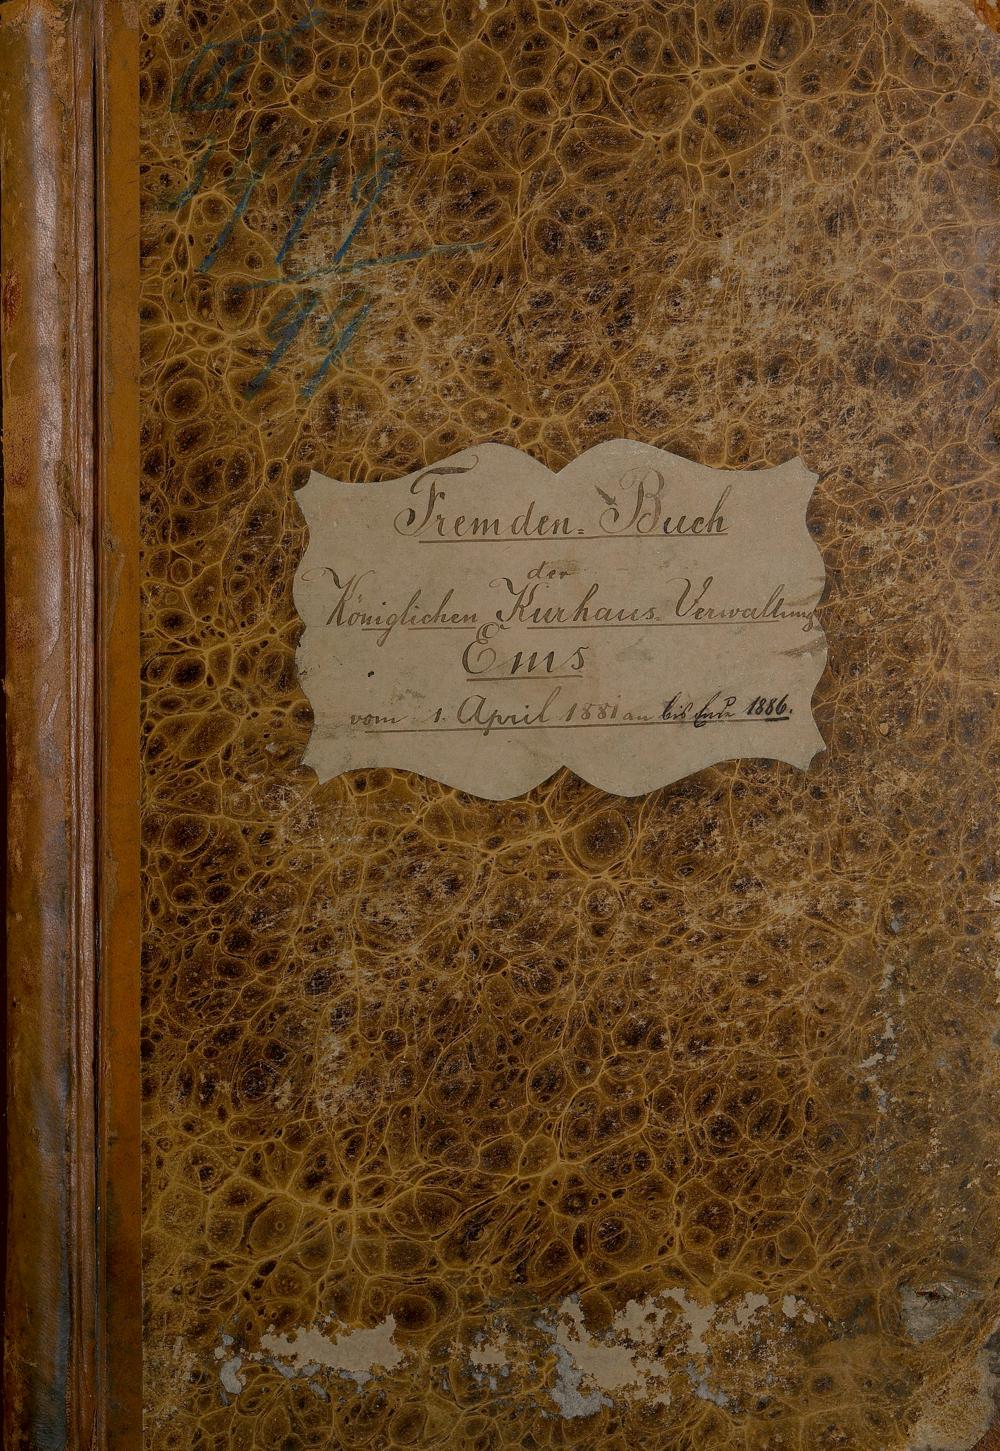 1799
99
Fremden-Buch
der
Königlichen Kurhaus-Verwaltung
Ems
vom 1. April 1881 an bis Ende 1886.